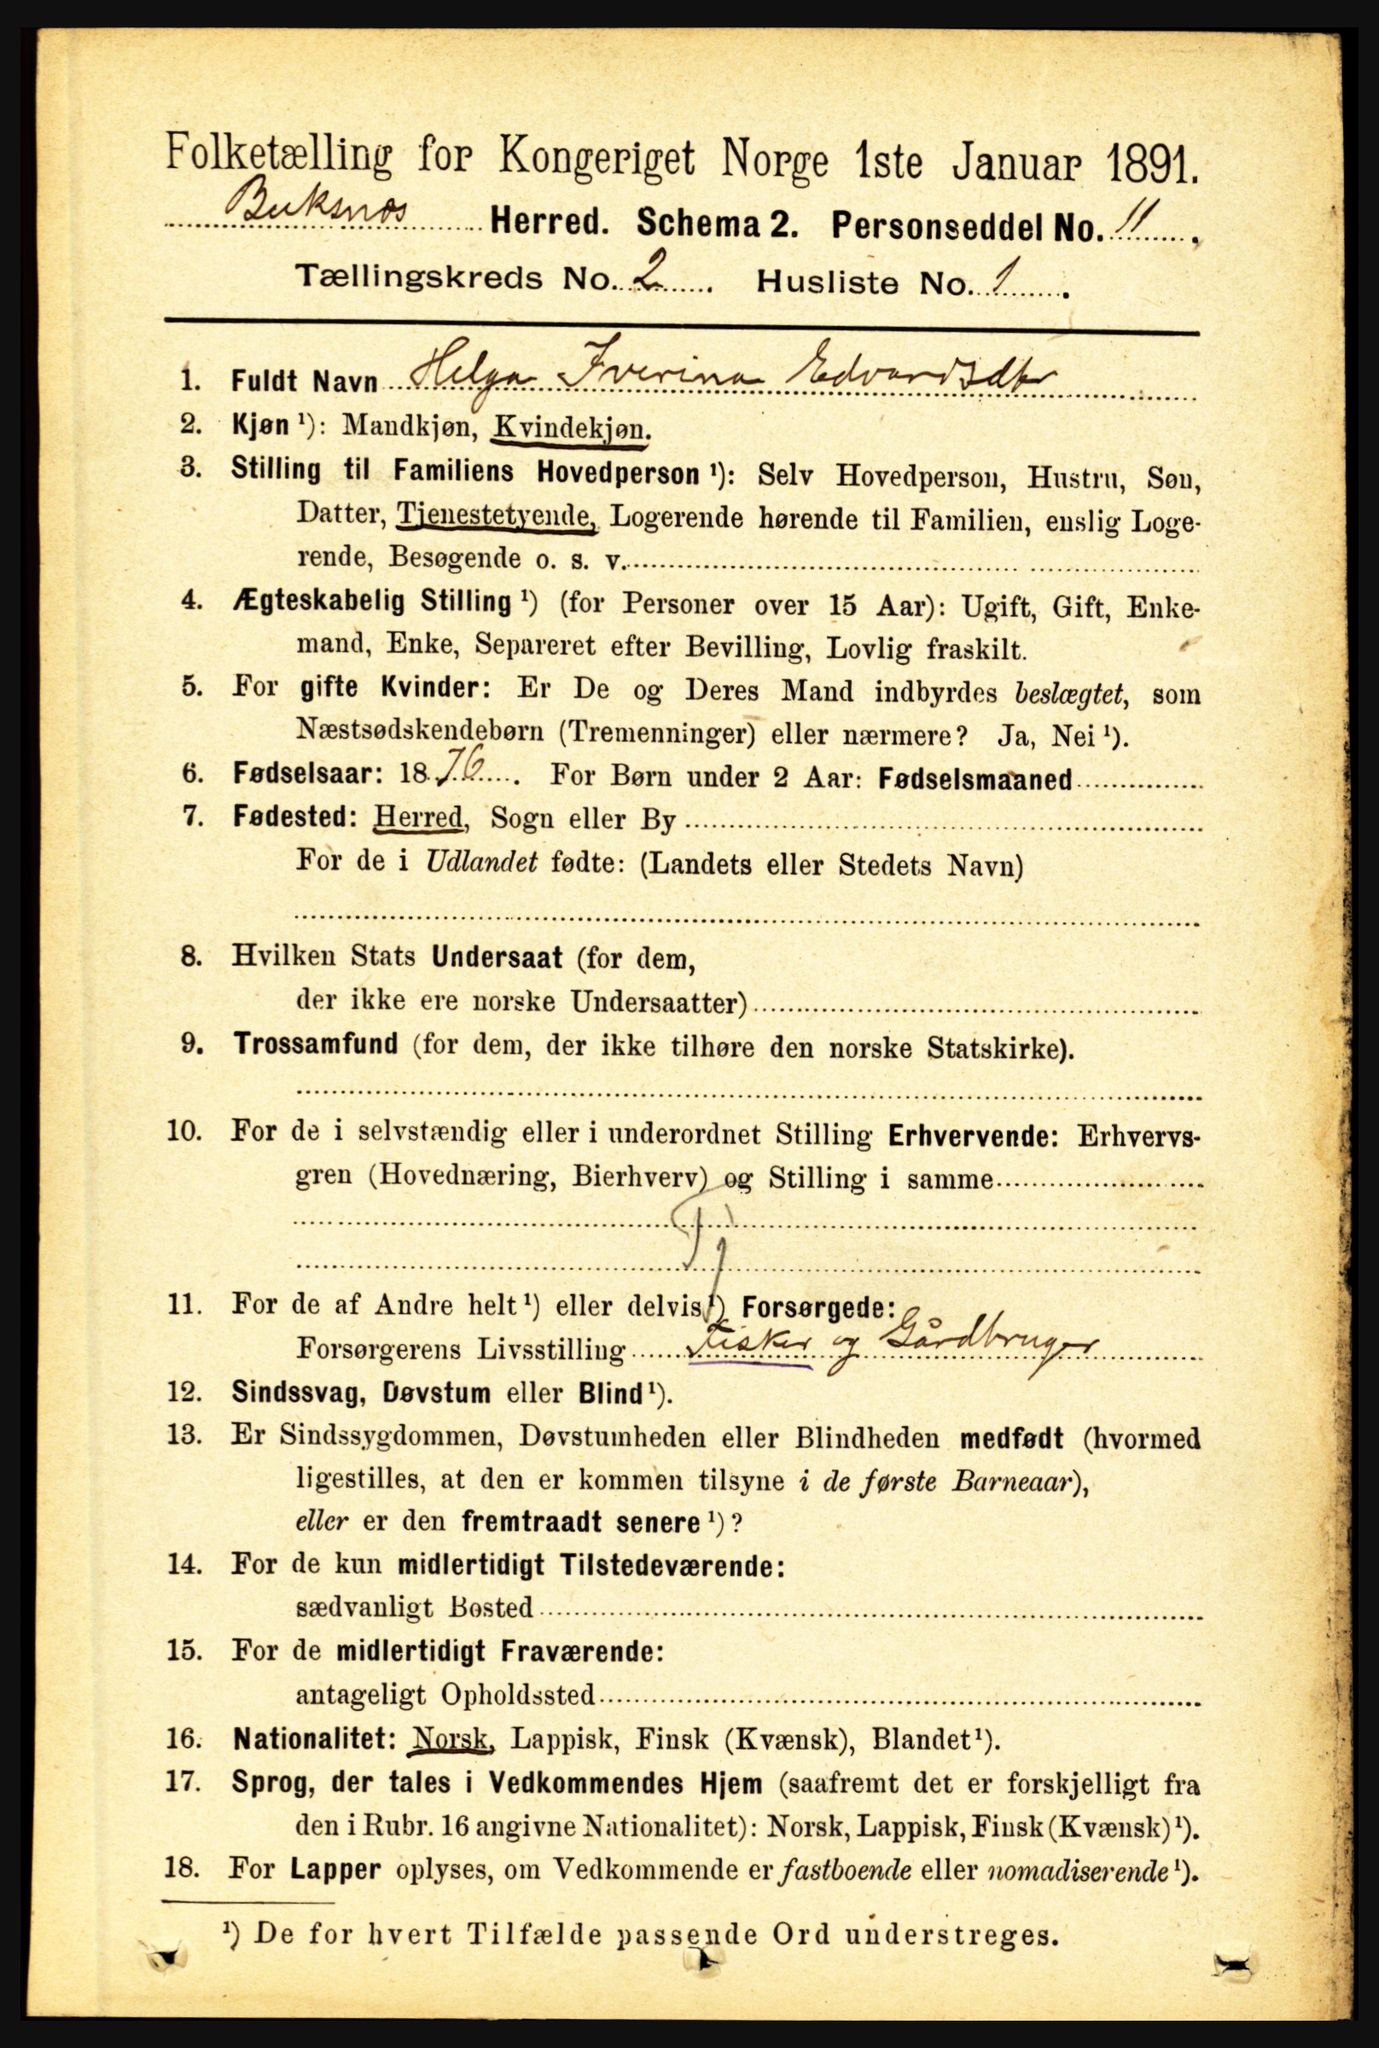 Folketælling for Kongeriget Norge 1ste Januar 1891.
Buksnes Herred. Schema 2. Personseddel No. 11.
Tællingskreds No. 2. Husliste No. 1.
1. Fuldt Navn Helga Iverina Edvardsdtr
2. Kjøn ¹): Mandkjøn, Kvindekjøn.
3. Stilling til Familiens Hovedperson ¹): Selv Hovedperson, Hustru, Søn,
Datter, Tjenestetyende, Logerende hørende til Familien, enslig Loge-
rende, Besøgende o. s. v.
4. Ægteskabelig Stilling ¹) (for Personer over 15 Aar): Ugift, Gift, Enke-
mand, Enke, Separeret efter Bevilling, Lovlig fraskilt.
5. For gifte Kvinder: Er De og Deres Mand indbyrdes beslægtet, som
Næstsødskendebørn (Tremenninger) eller nærmere? Ja, Nei ¹).
6. Fødselsaar: 1876. For Børn under 2 Aar: Fødselsmaaned
7. Fødested: Herred, Sogn eller By
For de i Udlandet fødte: (Landets eller Stedets Navn)
8. Hvilken Stats Undersaat (for dem,
der ikke ere norske Undersaatter)
9. Trossamfund (for dem, der ikke tilhøre den norske Statskirke).
10. For de i selvstændig eller i underordnet Stilling Erhvervende: Erhvervs-
gren (Hovednæring, Bierhverv) og Stilling i samme
Tj
11. For de af Andre helt ¹) eller delvis ¹) Forsørgede:
Forsørgerens Livsstilling Fisker og Gårdbruger
12. Sindssvag, Døvstum eller Blind ¹).
13. Er Sindssygdommen, Døvstumheden eller Blindheden medfødt (hvormed
ligestilles, at den er kommen tilsyne i de første Barneaar),
eller er den fremtraadt senere ¹)?
14. For de kun midlertidigt Tilstedeværende:
sædvanligt Bosted
15. For de midlertidigt Fraværende:
antageligt Opholdssted
16. Nationalitet: Norsk, Lappisk, Finsk (Kvænsk), Blandet ¹).
17. Sprog, der tales i Vedkommendes Hjem (saafremt det er forskjelligt fra
den i Rubr. 16 angivne Nationalitet): Norsk, Lappisk, Finsk (Kvænsk) ¹).
18. For Lapper oplyses, om Vedkommende er fastboende eller nomadiserende ¹).
¹) De for hvert Tilfælde passende Ord understreges.